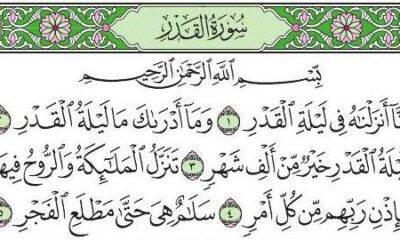 سُورَةُ الْقَدْرِ
بِسْمِ اللَّهِ الرَّحْمَٰنِ الرَّحِيمِ
نَّا أَنزَلْنَاهُ فِي لَيْلَةِ الْقَدْرِ ١ وَمَا أَدْرَاكَ مَا لَيْلَةُ الْقَدْرِ ٢
لَةُ الْقَدْرِ خَيْرٌ مِّنْ أَلْفِ شَهْرٍ ٣ تَنَزَّلُ الْمَلَائِكَةُ وَالرُّوحُ فِيهَ
بِإِذْنِ رَبِّهِم مِّن كُلِّ أَمْرٍ ٤ سَلَامٌ هِيَ حَتَّىٰ مَطْلَعِ الْفَجْرِ ٥